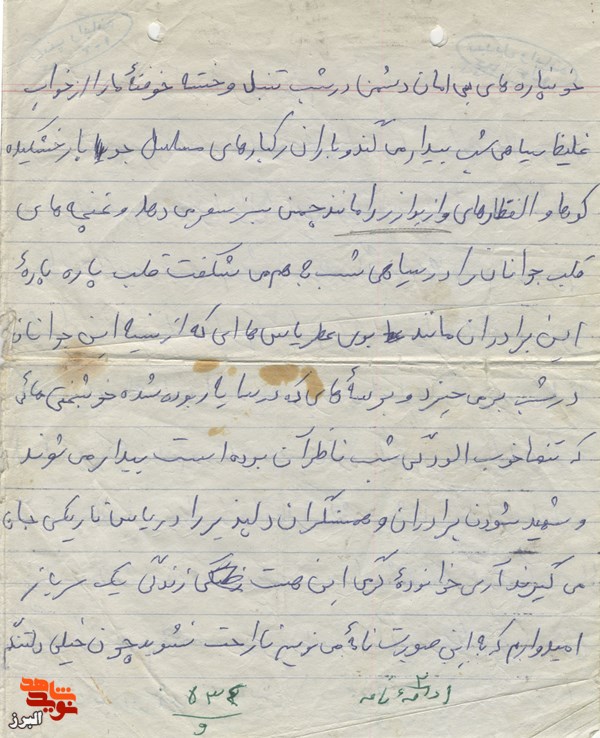 خونپاره های بی امان دشمن در شب تنبل و خسته خوفتهٔ مارا از خواب
غلیظ سیاهی شب بیدار می کند و باران رگبارهای مسلسل خشکیده
کوها و را مانند چمن سبز سفر می دهد و غنچه های
قلب جوانان را در سیاهی شب به هم می شکفت قلب پاره پارهٔ
این برادران مانند بوس عطر یاس ها ای که از سینه این جوانان
در شب بر می خیزد و بوسهٔ های که در سایه ربوده شده خوشبختی هائی
که تنها خوب الودگی شب ناظر آن بوده است بیدار می شوند
و شهید شودن برادران و همسنگران دلپذیر را در یاس تاریکی جای
می گیرند آری خوانودهٔ گرمی این هست زندگی یک سرباز
امیدوارم که به این صورت نامهٔ می نویسم ناراحت نشوید چون خیلی دلتنگ
ادامهٔ نامه
۲
و
نوید شاهد
البرز